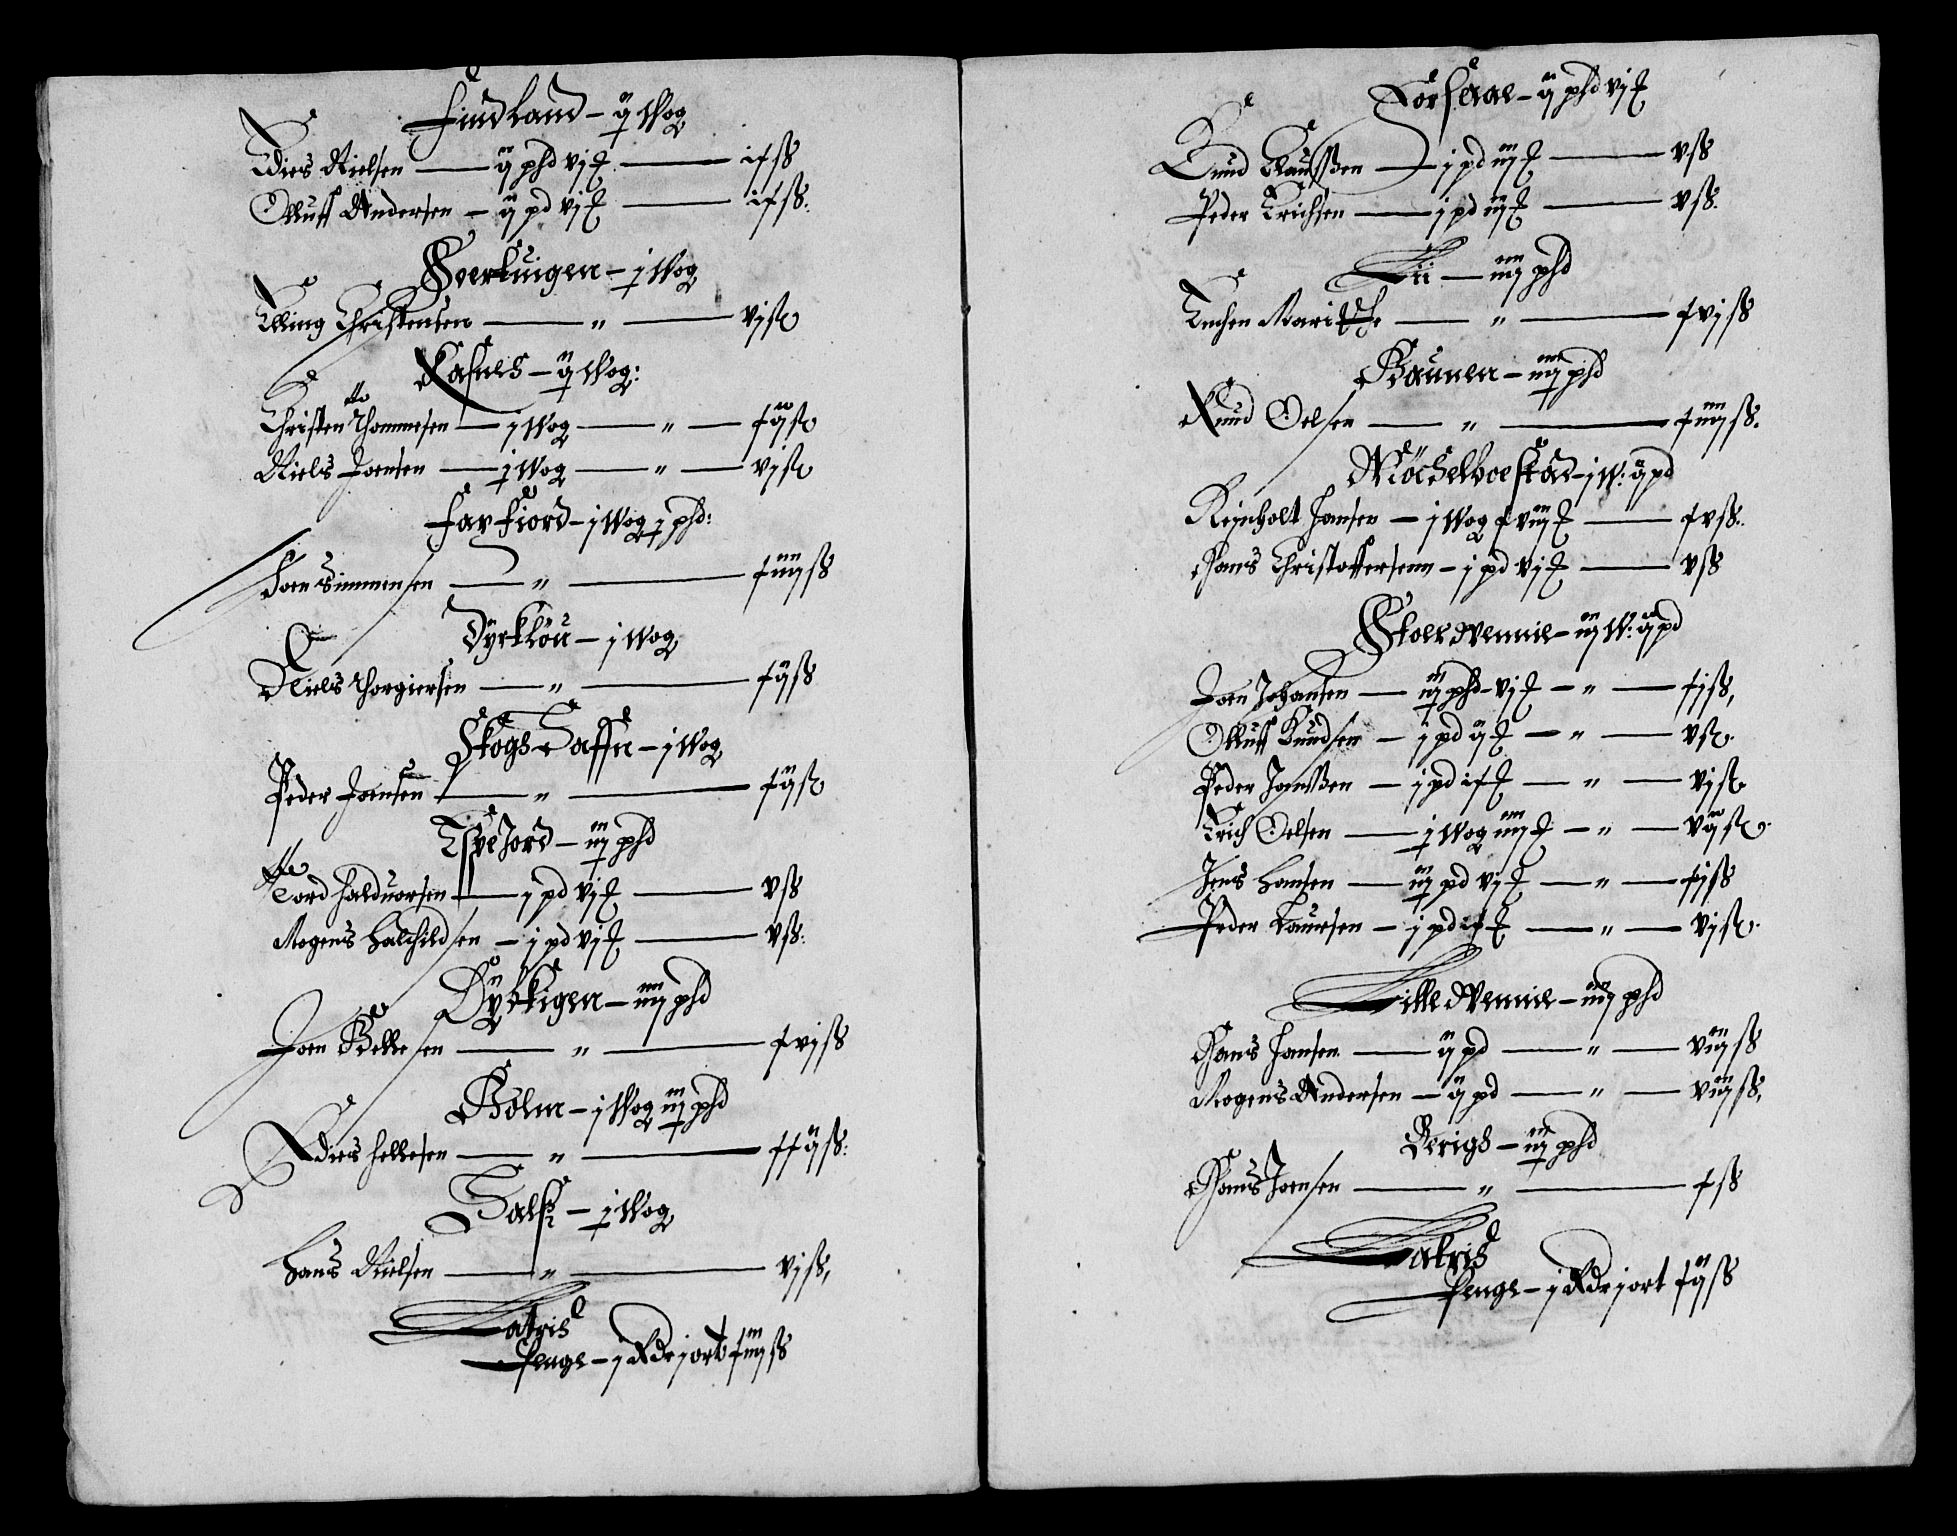 Findland – ij Wog
Dies Nielsen — ij phd vj ℔ — ix ß
Olluff Andersen – ij pd vj ℔ — ix ß.
Gverkuigen – j Wog
Elling Christensen — " — vj ß
Rasnes – ij Wog:
Christen Thommesen — j Wog — " — xij ß
Niels Joensen — j Wog — " — vj ß
Farfiord – j Wog j phd:
Joen Simmensen — " — xiiij ß
Dyrkløu – j Wog
Niels Thorgiersen — " — xij ß
Skogshaffn – j Wog
Peder Joensen — " — xij ß
Espejord – iij phd
Tord Halduorsen — j pd vj ℔ — v ß
Mogens Halchildsen – j pd vj ℔ — v ß.
– iiij phd
Joen Bellesen — " — xvj ß
Bølm – j Wog iij phd
Adies Hellesen — " — xxij ß.
– j Wog
Hans Nielsen — " — vj ß,
Lateris
Penge – j Rdr j ort xiij ß
– ij phd vj ℔
Knud Clausßen — j pd iij ℔ — v ß
Peder Erichsen — j pd iij ℔ — v ß.
Lii — iiij phd
Enchen Maritte — " — xvj ß
Baunen – iiij phd
Knud Oelsen — " — xiiij ß.
– j W: ij pd
Reinholt Jansen – j Wog xviij ℔ — xv ß.
Hans Christoffersenn – j pd vj ℔ — v ß
Stoer Wennie – iij W: ij pd
Joen Johansen — iij phd vj ℔ – " — xj ß,
Olluff Knudsen – j pd ij ℔ — " — v ß.
Peder Jonsßen – j pd ix ℔ — " — vj ß.
Erich Oelsen — j Wog iiij ℔ – " — vij ß.
Jens Hansen — iij pd vj ℔ — " — xj ß
Peder Laursen – j pd ix ℔ — " — vj ß.
Lille Wennie – iiij phd
Hans Jansen — ij pd — " — viij ß
Mogens Andersen – ij pd — " — viij ß,
Berigs – iij phd
Hans Joensen — " — x ß
Lateris
Penge – j Rdr j ort xij ß